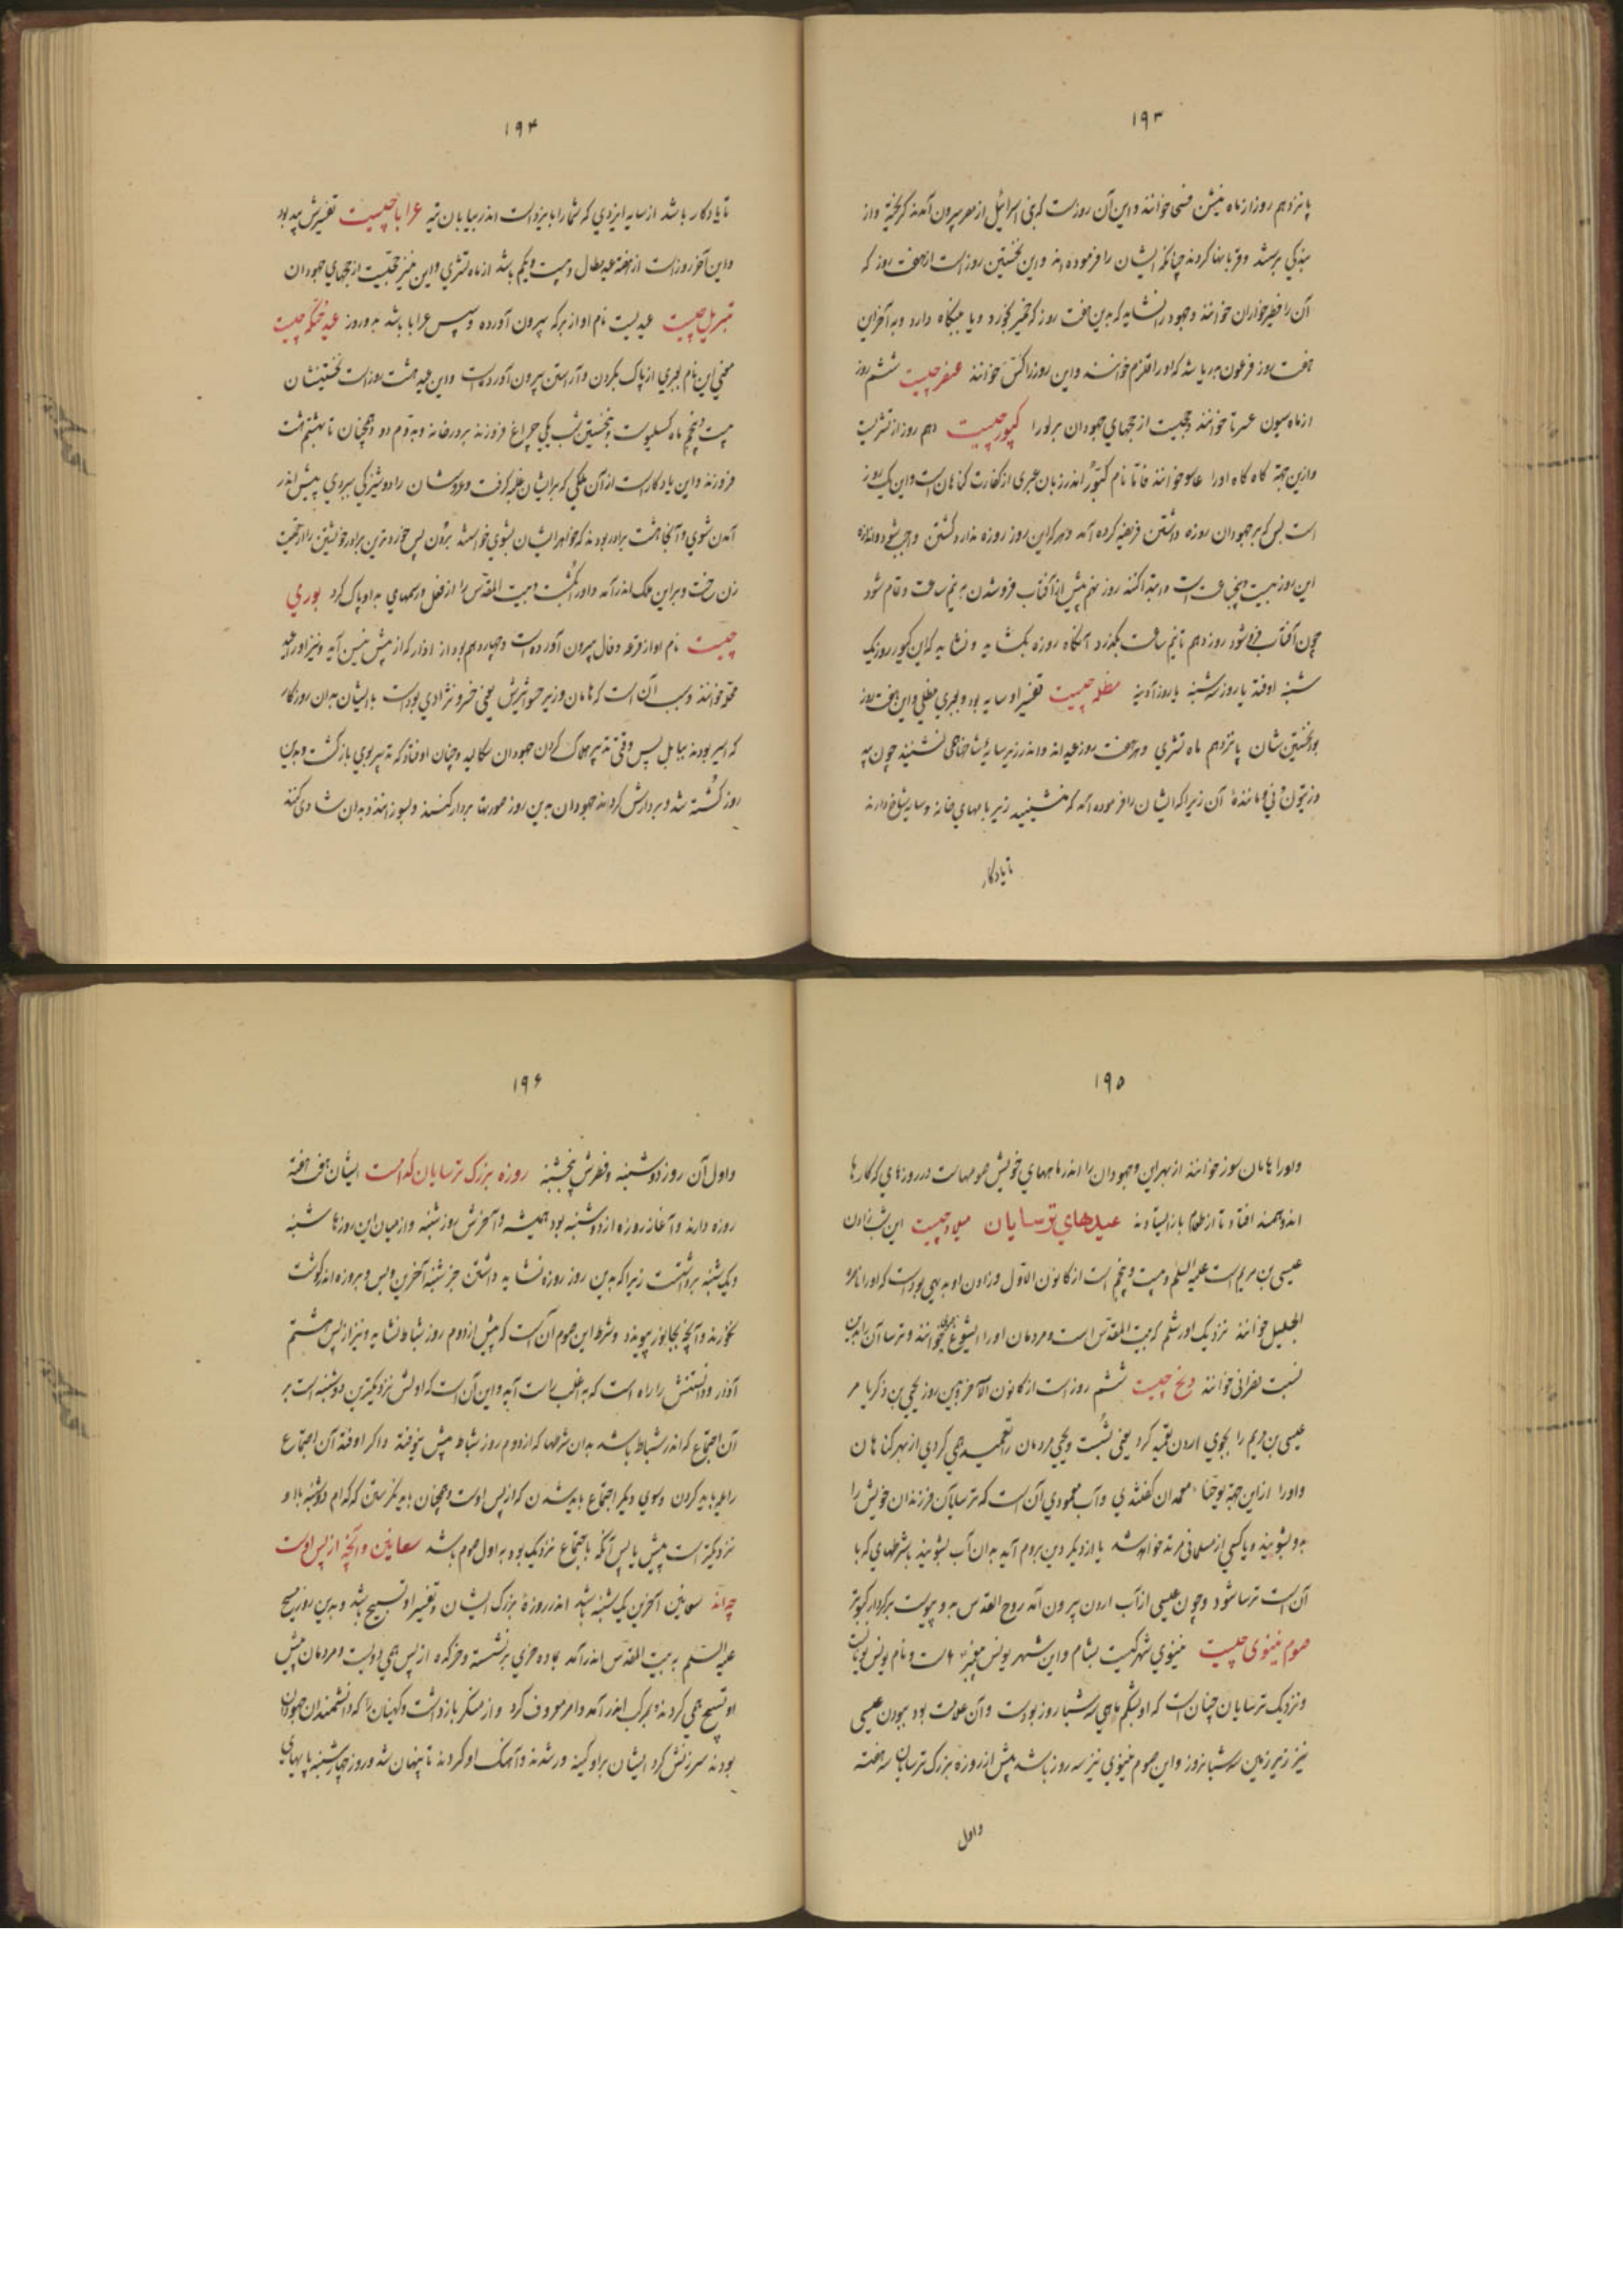 ١٩٣
پانزدهم روز از ماه نیسن فسح خوانند و این آن روزست که بنی اسرائیل از مصر بیرون آمدند گریخته و از
بندگی برستند و قربانها کردند چنانکه ایشان را فرموده اند و این نخستین روز است از هفت روز که
آن را فطیر خواران خوانند و جهود را نشاید که بدین هفت روز که خمیر بخورد و یا بخانه دارد و به آخر این
هفت روز فرعون بدریا شد که او را قلزم خوانند و این روز را کس خوانند عنصر چیست ششم روز
از ماه سیون عسرتا خوانند و حجیست از حجهای جهودان بزرگوار کپور چیست دهم روز از تشریست
و ازین جهة گاه گاه او را عاسور خوانند فاما نام کپور اندر زبان عبری از کفارت گناهان است و این یک روز
است بس که بر جهودان روزه داشتن فریضه کرده آمد و هر که این روز روزه ندارد کشتن واجب شود و اندازه
این روز بیست و پنج ساعت است و ابتدا کنند روز نهم پیش از آفتاب فروشدن به نیم ساعت و تمام شود
چون آفتاب فروشود روز دهم تا نیم ساعت بگذرد آنگاه روزه بگشاید و نشاید که این کپور روز یک
شنبه اوفتد یا روز سه شنبه یا روز آدینه مظله چیست تفسیر او سایه بود و بعبری مطلی و این هفت روز
بود نخستین شان پانزدهم ماه تشری و هر هفت روز عید اند و اندر زیر سایهٔ شاخها همی نشینند چون بید
و زیتون و نی و مانندهٔ آن زیرا که ایشان را فرموده آمد که منشینید زیر بامهای خانه و سایه شاخ دارند
تا یادکار
١٩۴
تا یادکار باشد از سایه ایزدی که شما را با یزداست اندر بیابان تیه عرابا چیست تفسیرش بید بود
و این آخر روز است از هفته عید مطال و بیست و یکم باشد از ماه تشری و این نیز حجیست از حجهای جهودان
تبریک چیست عیدیست نام او از برکه بیرون آورده و سپس عرابا باشد بدو روز عید حنکه چیست
معنی این نام بعبری از پاک بکردن و آراستن بیرون آورده است و این عید هشت روز است نخستینشان
بیست و پنجم ماه کسلیو است و نخستین شب یکی چراغ فروزند بر در خانه و بدوم دو و همچنان تا بهشتم هشت
فروزند و این یادکار است از آن ملکی که برایشان غلبه گرفت و عروسشان را دوشیزگی ببردی پیش اندر
آمدن شوی و آنجا هشت برادر بودند که خواهر ایشان بشوی خواستند بردن پس خوردترین برادر خویشتن را در جامه
زن رخت و بر این ملک اندر آمد و او را بکشت و بیت المقدس را از فعل و رسمهای بد او پاک کرد بوری
چیست نام او از قرعه و فال بیرون آورده است و چهاردهم بود از اذار که از پیش نیسن آید و نیز او را عید
مجله خوانند و سبب آن است که هامان وزیر حسوشیرش یعنی خسرو نژادی بود است با ایشان بدان روزگار
که اسیر بودند ببابل پس وقتی تدبیر هلاک کردن جهودان سکالید و چنان اوفتاد که تدبیر بوی بازگشت و بدین
روز کشته شد و بر دارش کردند جهودان بدین روز صورتها بر دار کنند و بسوزانند و بدان شادی کنند
١٩۵
و او را هامان سوز خوانند از بهر این و جهودان را اندر ماههای خویش صومهاست در روزهای که کارها
اندوهمند افتاد تا از طعام باز ایستادند عیدهای ترسایان میلاد چیست این شب زادن
عیسی بن مریم است علیه السلم و بیست و پنجم است از کانون الاول و زادن او به دیهی بود است که او را ناصرهٔ
الجلیل خوانند نزدیک اورشلم که بیت المقدس است و مردمان او را ایشوع خوانند و ترسا آن را بدین
نسبت نصرانی خوانند دنح چیست ششم روز است از کانون الآخر و بدین روز یحیی بن زکریا مر
عیسی بن مریم را بجوی اردن تعمید کرد یعنی بشست و یحیی مردمان را تعمید همی کردی از بهر گناهان
و او را از این جهة یوحنا معمدان گفتندی و آب معمودی آن است که ترسایان فرزندان خویش را
بدو بشویند و یا کسی از مسلمانی مرتد خواهد شد یا از دیگر دین بروم آید بدان آب بشویند باشرطهای که با
آن است ترسا شود و چون عیسی از آب اردن بیرون آمد روح القدس بدو پیوست بر کردار کبوتر
صوم نینوی چیست نینوی شهرکیست بشام و این شهر یونس پیغمبر است و نام یونس یوناست
و نزدیک ترسایان چنان است که او بشکم ماهی سه شبا روز بوده است و آن علامت بود ببودن عیسی
نیز زیر زمین سه شبانروز و این صوم نینوی نیز سه روز باشد پیش از روزهٔ بزرگ ترسایان سه هفته
و اول
١٩۶
و اول آن روز دوشنبه و فطرش پنجشنبه روزه بزرگ ترسایان کدامست ایشان هفت هفته
روزه دارند و آغاز روزه از دوشنبه بود همیشه و آخرش روز شنبه و از میان این روزها شنبه
و یک شنبه برداشتست زیرا که بدین روز روزه نشاید داشتن جز شنبه آخرین و بس و بروزه اندر گوشت
نخورند و آنچه بجانور پیوندد و شرط این صوم آن است که پیش از دوم روز شباط نشاید و نیز از پس هشتم
آذار و دانستنش را راه است که به اغلب راست آید و این آن است که اولش نزدیکترین دوشنبه است بر
آن اجتماع که اندر شباط باشد بدان شرطها که از دوم روز شباط پیش نیوفتد و اگر اوفتد آن اجتماع
را یله باید کردن و سوی دیگر اجتماع باید شدن که از پس اوست و همچنان باید نگرستن که کدام دوشنبه بااو
نزدیکتر است پیش یا پس آنکه باجتماع نزدیک بود به اول صوم باشد سعانین و آنچه از پس اوست
چه اند سعانین آخرین یک شنبه باشد اندر روزهٔ بزرگ ایشان و تفسیر او تسبیح باشد و بدین روز مسیح
علیه السلم به بیت المقدس اندر آمد بماده خری برنشسته و خر کره از پس همی دویدست و مردمان پیش
او تسبیح همی کردند و بمزکت اندر آمد و امر معروف کرد و از منکر بازداشت و کهنیان را که دانشمندان جهودان
بودند سرزنش کرد ایشان بر او کینه ور شدند و آهنگ او کردند تا پنهان شد و روز چهارشنبه پایهای